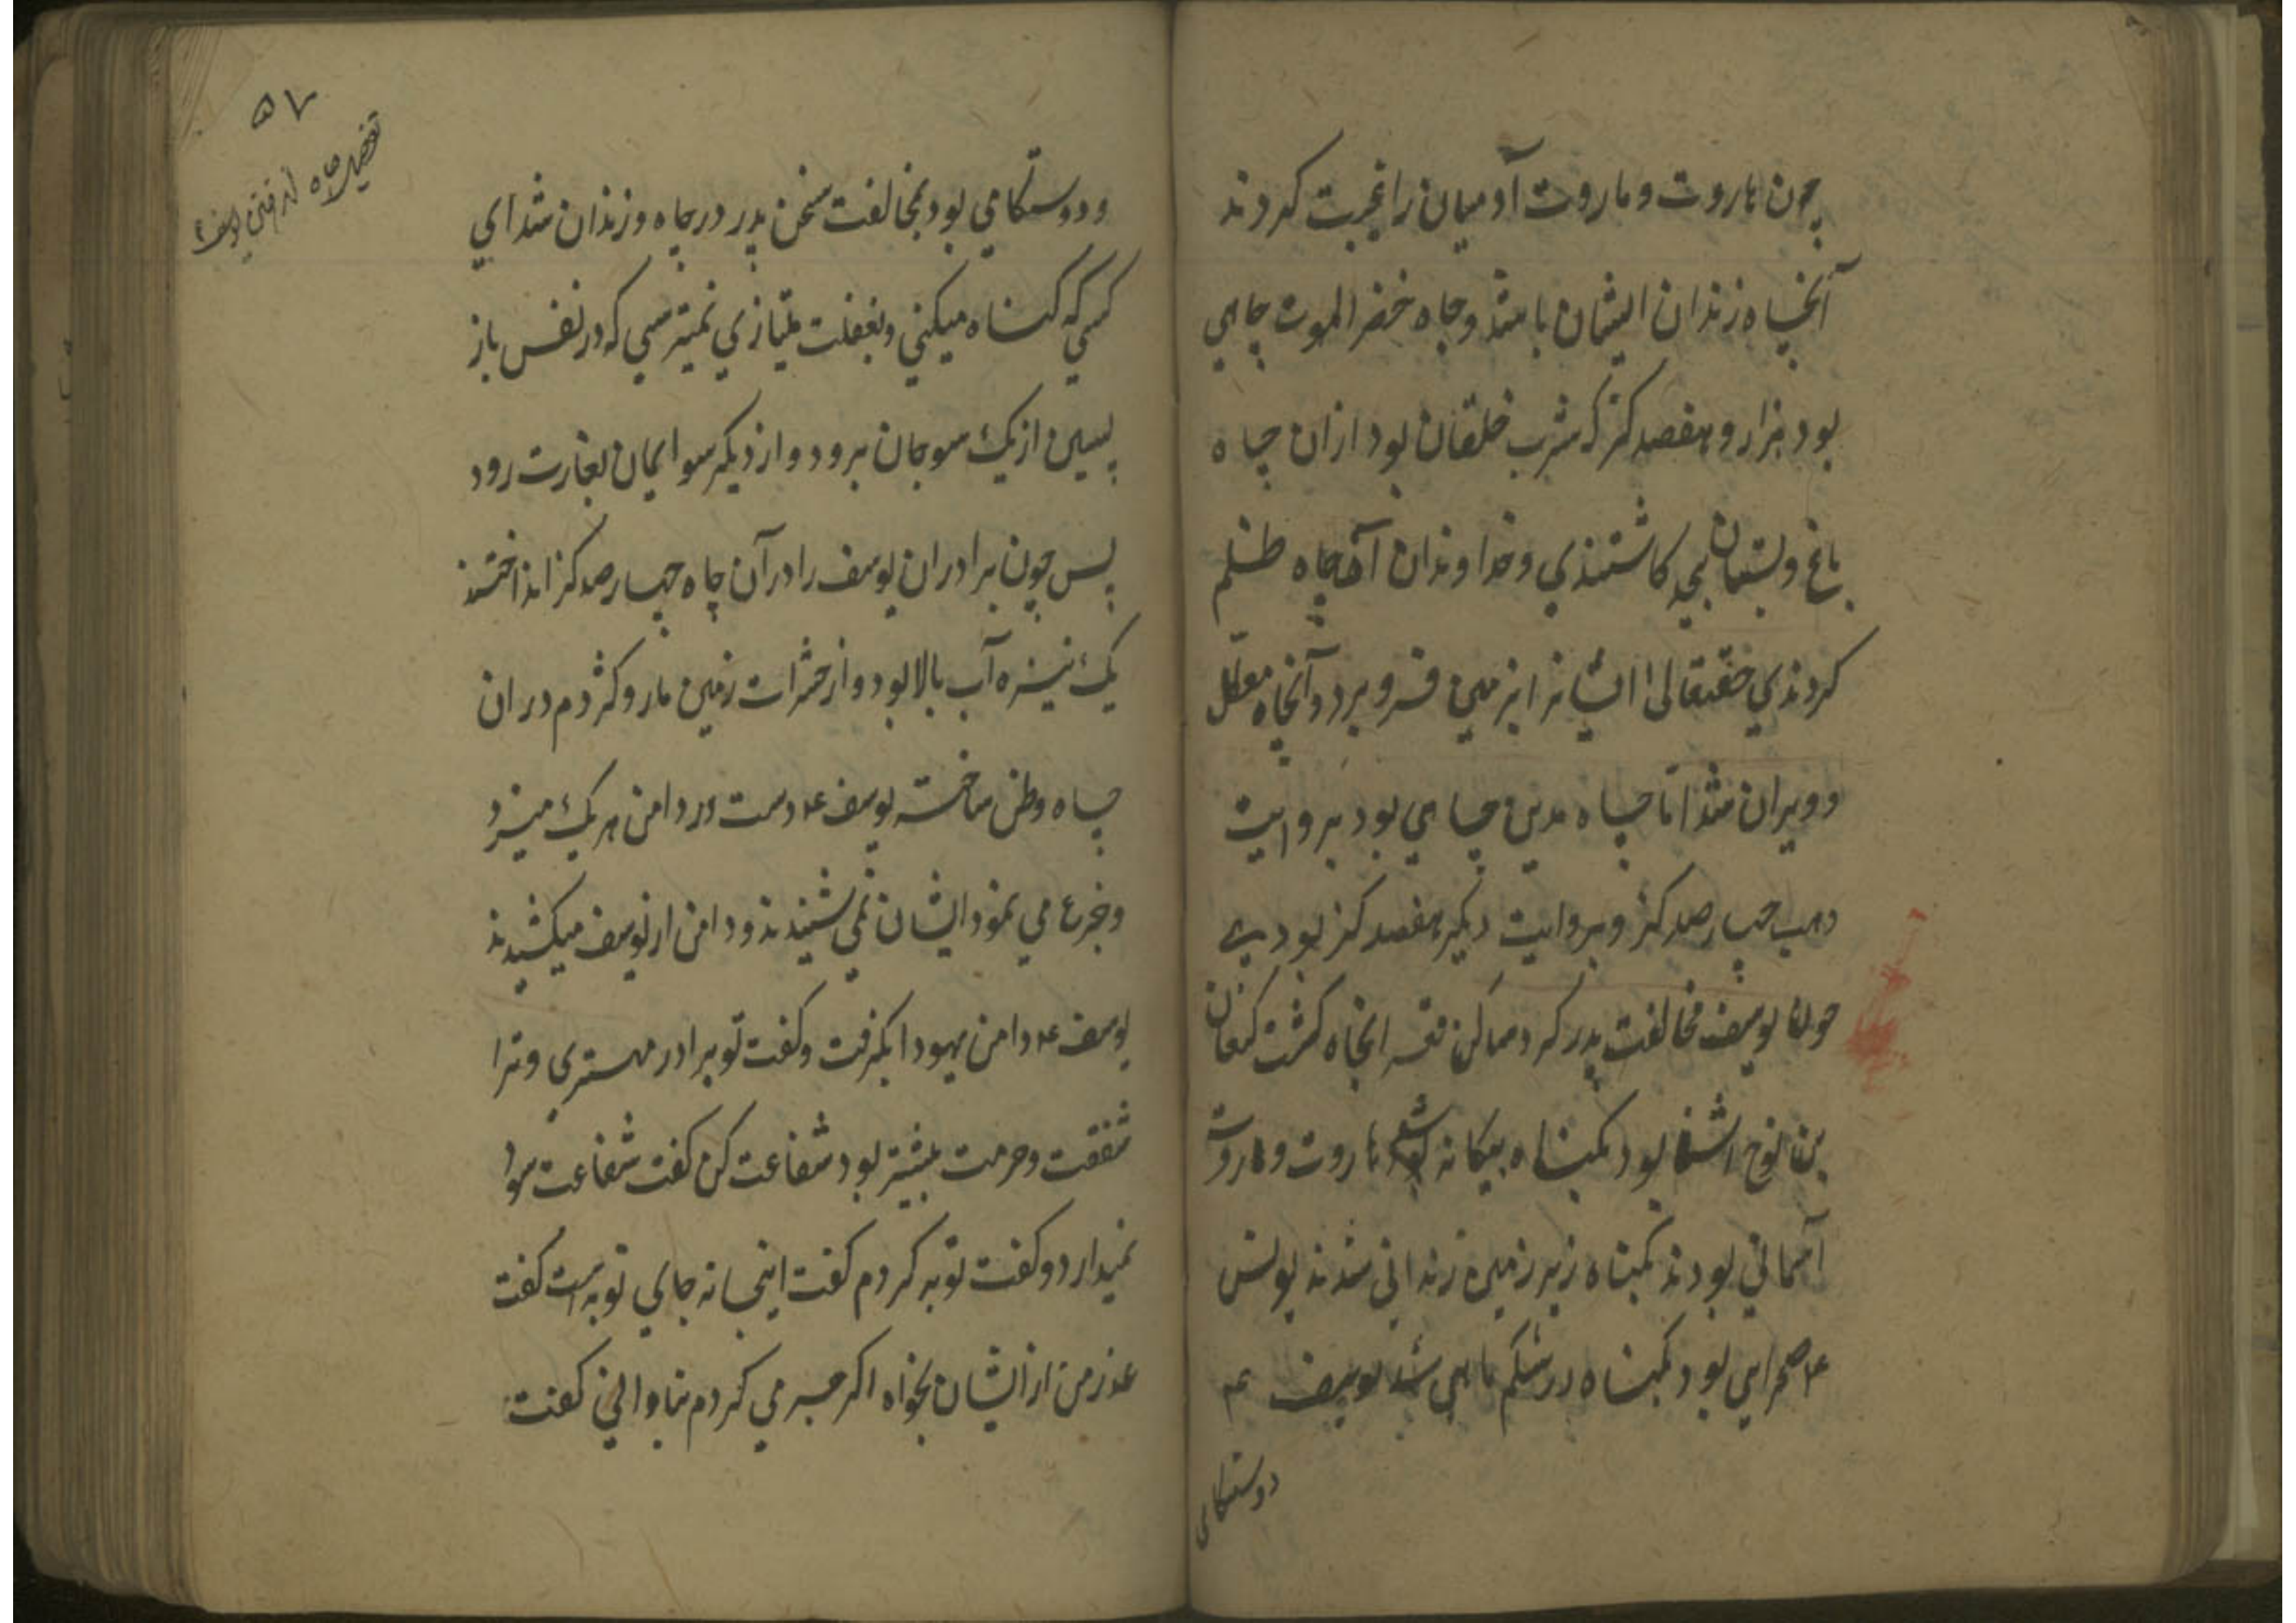 چون هاروت و ماروت آدمیان را غیبت کردند
آنچاه زندان ایشان باشد و چاه خضرالموت چاهی
بود هزار و هفصد گز که شرب خلقان بود ازان چاه
باغ و بستان کاشتندی و خداوندان آن چاه ظلم
کردندی حقیقالی ایشانرا بزمین فرو برد و آنچاه معطل
و ویران شد اما چاه مدین چاهی بود بروایت
وهب چهارصد گز و بروایت دیگر هفصد گز بودی
یوسف مخالفت پدر کرد ساکن قعر انچاه گشت کنعان
بن نوح اشنا بود بگناه بیگانه هاروت و ماروت
آسمانی بودند بگناه زیر زمین زندانی شدند یونس
ع م صحرایی بود بگناه در شکم ماهی شد یوسف ع م
دوستکامی
۵۷
چاه یوسف ع
و دوستکامی بود بمخالفت سخن پدر در چاه و زندان شد ای
کسی که گناه میکنی و بغفلت میبازی نمیترسی که در نفس باز
پسین از یک سو جان برود و از دیگر سو ایمان بغارت رود
پس چون برادران یوسف را در آن چاه چهارصد گز انداختند
یک نیزه آب بالا بود و از حشرات زمین مار و کژدم دران
چاه وطن ساخته یوسف ع م دست در دامن هر یک میزد
و جزع می نمود ایشان نمی شنیدند و دامن از یوسف میکشیدند
یوسف ع م دامن یهودا بگرفت و گفت تو برادر مهتری و ترا
شفقت و حرمت بیشتر بود شفاعت کن گفت شفاعت سود
نمیدارد و گفت توبه کردم گفت اینجا نه جای توبه است گفت
عذر من از ایشان بخواه اگر می کردم گفت